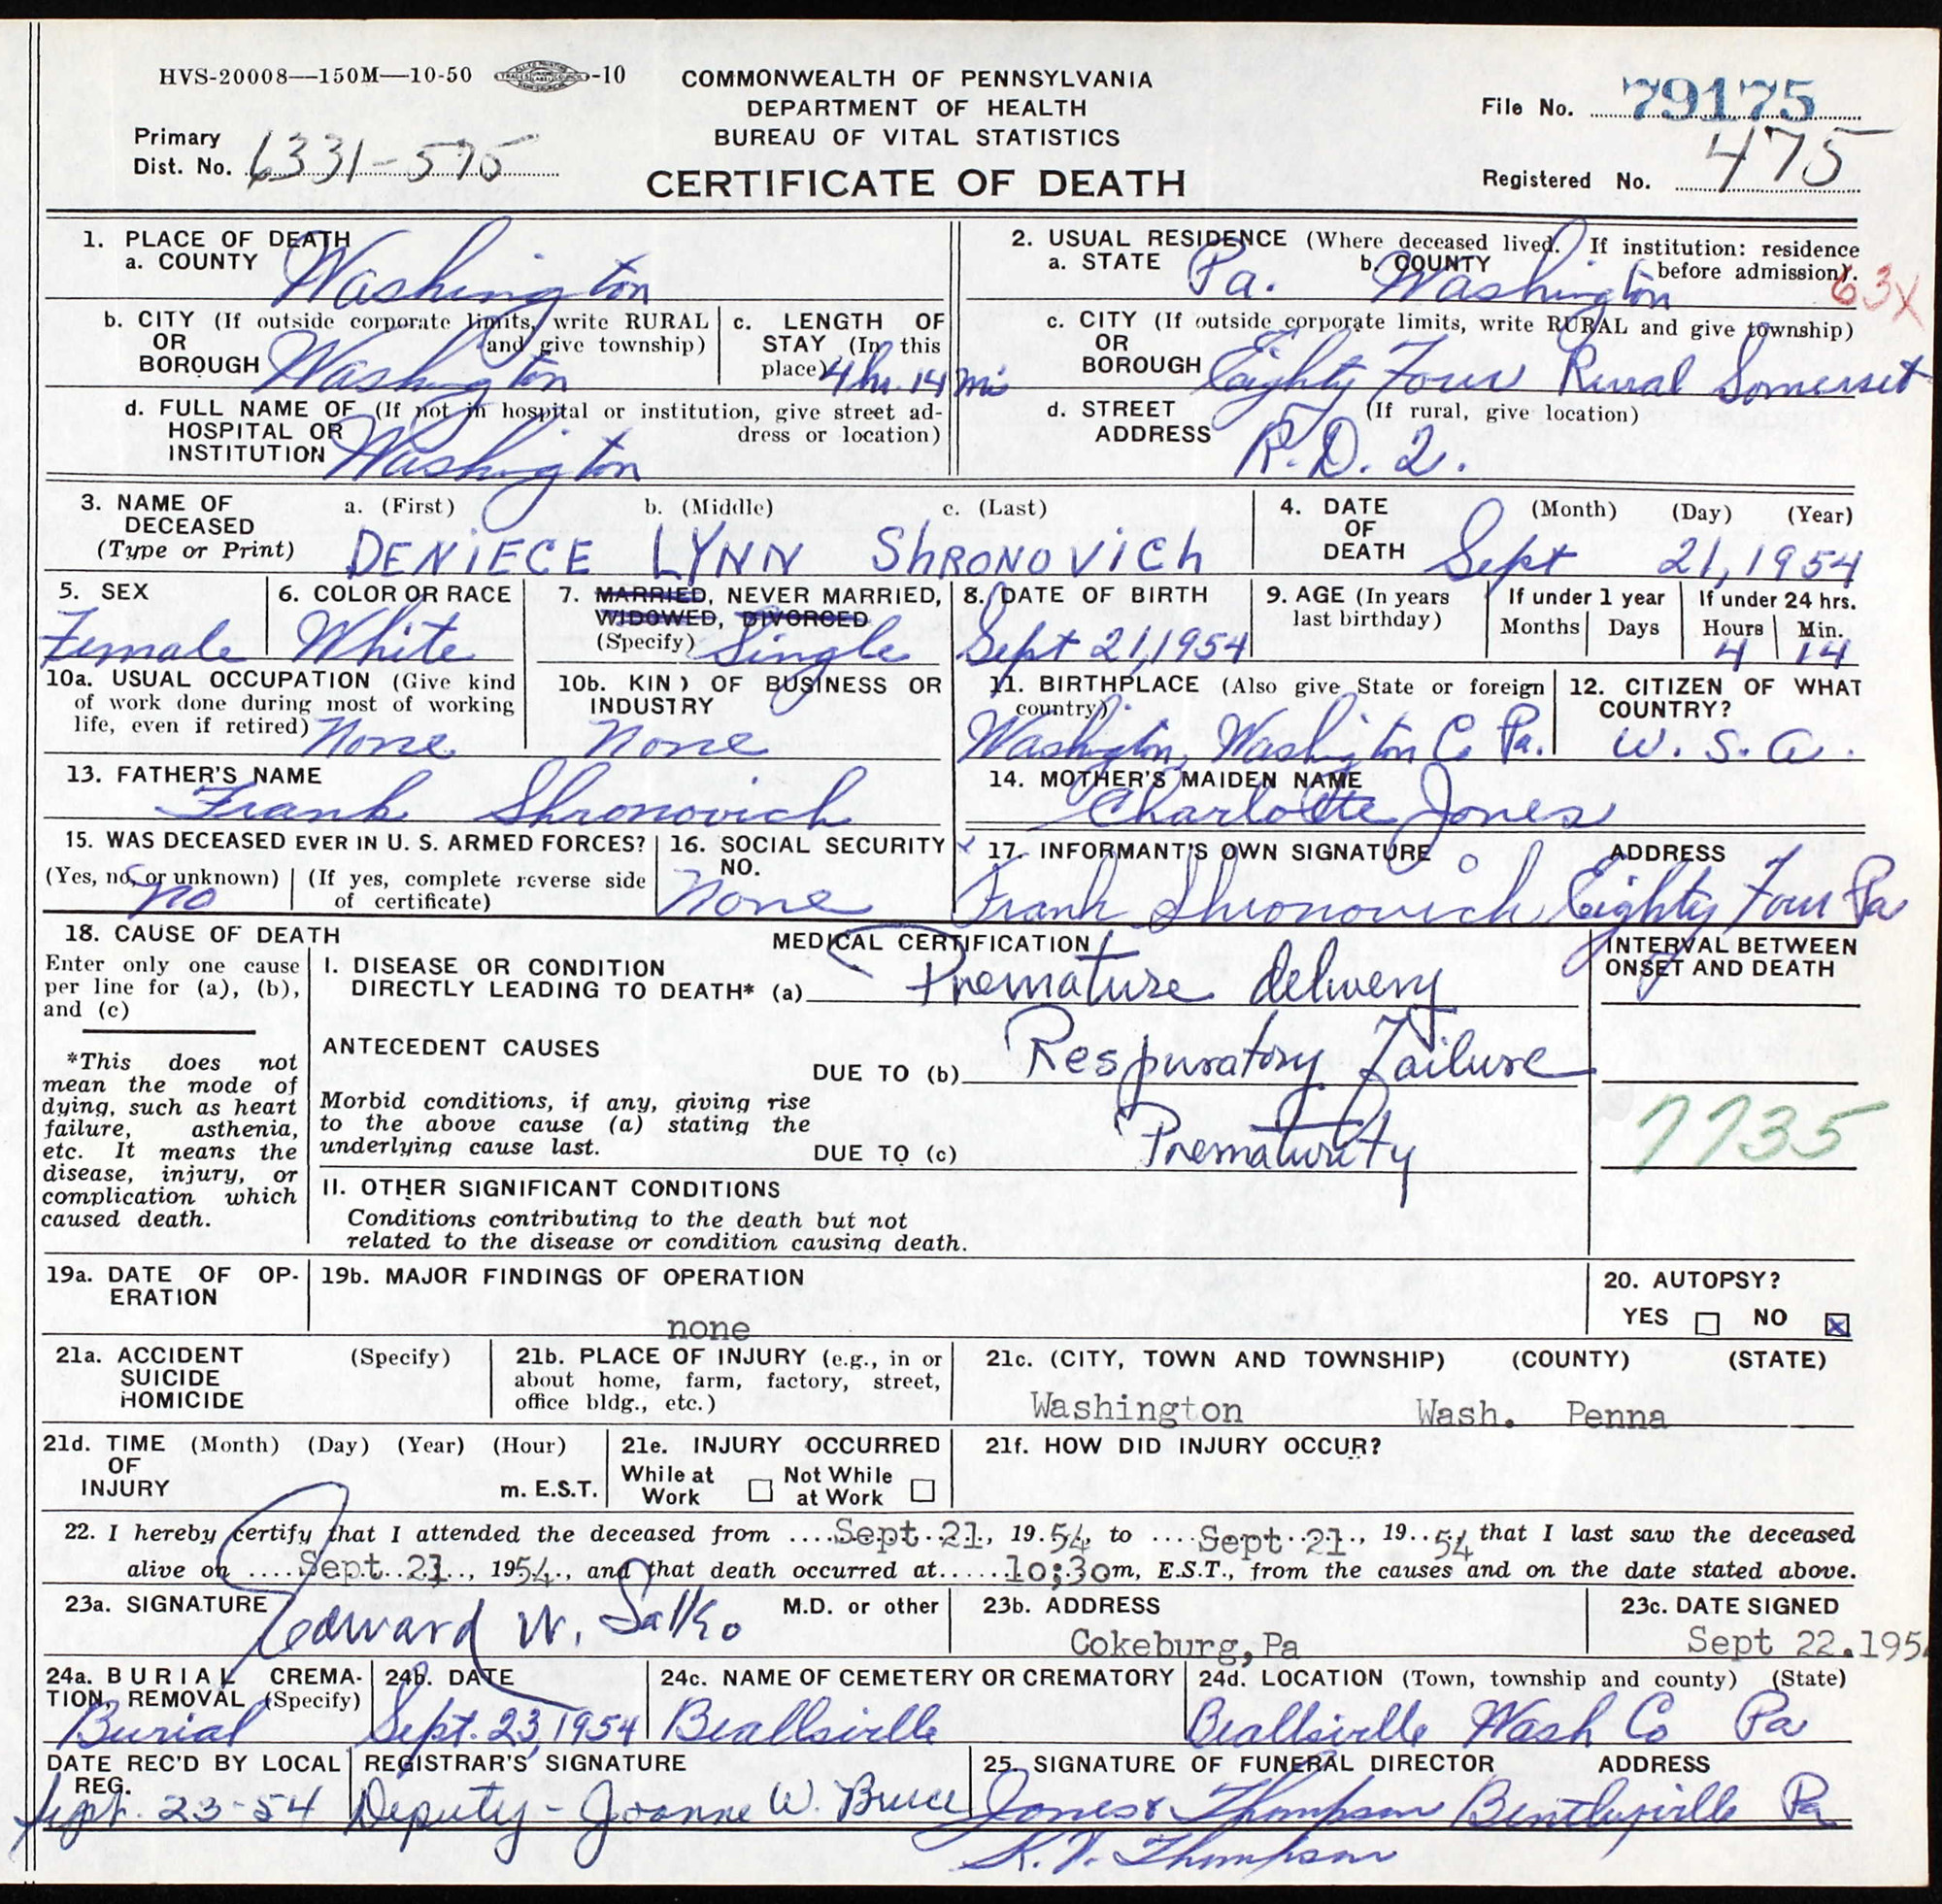 HVS-20008—150M—10-50 -10
COMMONWEALTH OF PENNSYLVANIA
DEPARTMENT OF HEALTH
BUREAU OF VITAL STATISTICS
CERTIFICATE OF DEATH
File No. 79175
Primary
Dist. No. 6331-575
Registered No. 475
1. PLACE OF DEATH
a. COUNTY Washington
2. USUAL RESIDENCE (Where deceased lived. If institution: residence
before admission).
a. STATE Pa. b. COUNTY Washington
63X
b. CITY (If outside corporate limits, write RURAL
OR and give township)
BOROUGH Washington
c. LENGTH OF
STAY (In this
place) 4 hr. 14 mi
c. CITY (If outside corporate limits, write RURAL and give township)
OR
BOROUGH Eighty Four Rural Somerset
d. FULL NAME OF (If not in hospital or institution, give street ad-
HOSPITAL OR dress or location)
INSTITUTION Washington
d. STREET (If rural, give location)
ADDRESS R.D. 2.
3. NAME OF a. (First) b. (Middle) c. (Last)
DECEASED
(Type or Print) DENIECE LYNN ShRONOVICh
4. DATE (Month) (Day) (Year)
OF
DEATH Sept 21, 1954
5. SEX
Female
6. COLOR OR RACE
White
7. MARRIED, NEVER MARRIED,
WIDOWED, DIVORCED
(Specify) Single
8. DATE OF BIRTH
Sept 21, 1954
9. AGE (In years
last birthday)
If under 1 year
Months Days
If under 24 hrs.
Hours Min.
4 14
10a. USUAL OCCUPATION (Give kind
of work done during most of working
life, even if retired) None
10b. KIND OF BUSINESS OR
INDUSTRY
None
11. BIRTHPLACE (Also give State or foreign
country)
Washington, Washington Co Pa.
12. CITIZEN OF WHAT
COUNTRY?
U. S. a.
13. FATHER'S NAME
Frank Shronovich
14. MOTHER'S MAIDEN NAME
Charlotte Jones
15. WAS DECEASED EVER IN U. S. ARMED FORCES?
(Yes, no, or unknown) (If yes, complete reverse side
of certificate)
no
16. SOCIAL SECURITY
NO.
None
17. INFORMANT'S OWN SIGNATURE ADDRESS
Frank Shronovich Eighty Four Pa
18. CAUSE OF DEATH
Enter only one cause
per line for (a), (b),
and (c)
*This does not
mean the mode of
dying, such as heart
failure, asthenia,
etc. It means the
disease, injury, or
complication which
caused death.
MEDICAL CERTIFICATION
I. DISEASE OR CONDITION
DIRECTLY LEADING TO DEATH* (a) Premature delivery
ANTECEDENT CAUSES
DUE TO (b) Respiratory Failure
Morbid conditions, if any, giving rise
to the above cause (a) stating the
underlying cause last.
DUE TO (c) Prematurity
II. OTHER SIGNIFICANT CONDITIONS
Conditions contributing to the death but not
related to the disease or condition causing death.
INTERVAL BETWEEN
ONSET AND DEATH
7735
19a. DATE OF OP-
ERATION
19b. MAJOR FINDINGS OF OPERATION
none
20. AUTOPSY?
YES NO
21a. ACCIDENT (Specify)
SUICIDE
HOMICIDE
21b. PLACE OF INJURY (e.g., in or
about home, farm, factory, street,
office bldg., etc.)
21c. (CITY, TOWN AND TOWNSHIP) (COUNTY) (STATE)
Washington Wash. Penna
21d. TIME (Month) (Day) (Year) (Hour)
OF
INJURY m. E.S.T.
21e. INJURY OCCURRED
While at Not While
Work at Work
21f. HOW DID INJURY OCCUR?
22. I hereby certify that I attended the deceased from Sept 21, 19 54, to Sept 21, 19 54 that I last saw the deceased
alive on Sept 21, 1954, and that death occurred at 10:30m, E.S.T., from the causes and on the date stated above.
23a. SIGNATURE M.D. or other
Edward W. Salko
23b. ADDRESS
Cokeburg, Pa
23c. DATE SIGNED
Sept 22.1954
24a. BURIAL CREMA-
TION, REMOVAL (Specify)
Burial
24b. DATE
Sept. 23, 1954
24c. NAME OF CEMETERY OR CREMATORY
Beallsville
24d. LOCATION (Town, township and county) (State)
Beallsville Wash Co Pa
DATE REC'D BY LOCAL
REG.
Sept. 23-54
REGISTRAR'S SIGNATURE
Deputy - Joanne W. Bruce
25. SIGNATURE OF FUNERAL DIRECTOR ADDRESS
Jones & Thompson Bentleyville Pa
K. V. Thompson